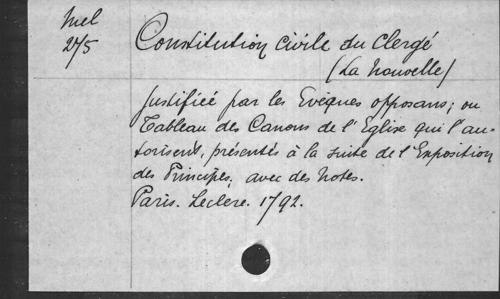 Mel
275
Constitution civile du Clergé
(La Nouvelle)
justifiée par les Evêques opposans; ou
Tableau des Canons de l'Eglise qui l'au-
torisent, présentés à la suite de l'Exposition
des Principes, avec des Notes.
Paris. Leclere. 1792.